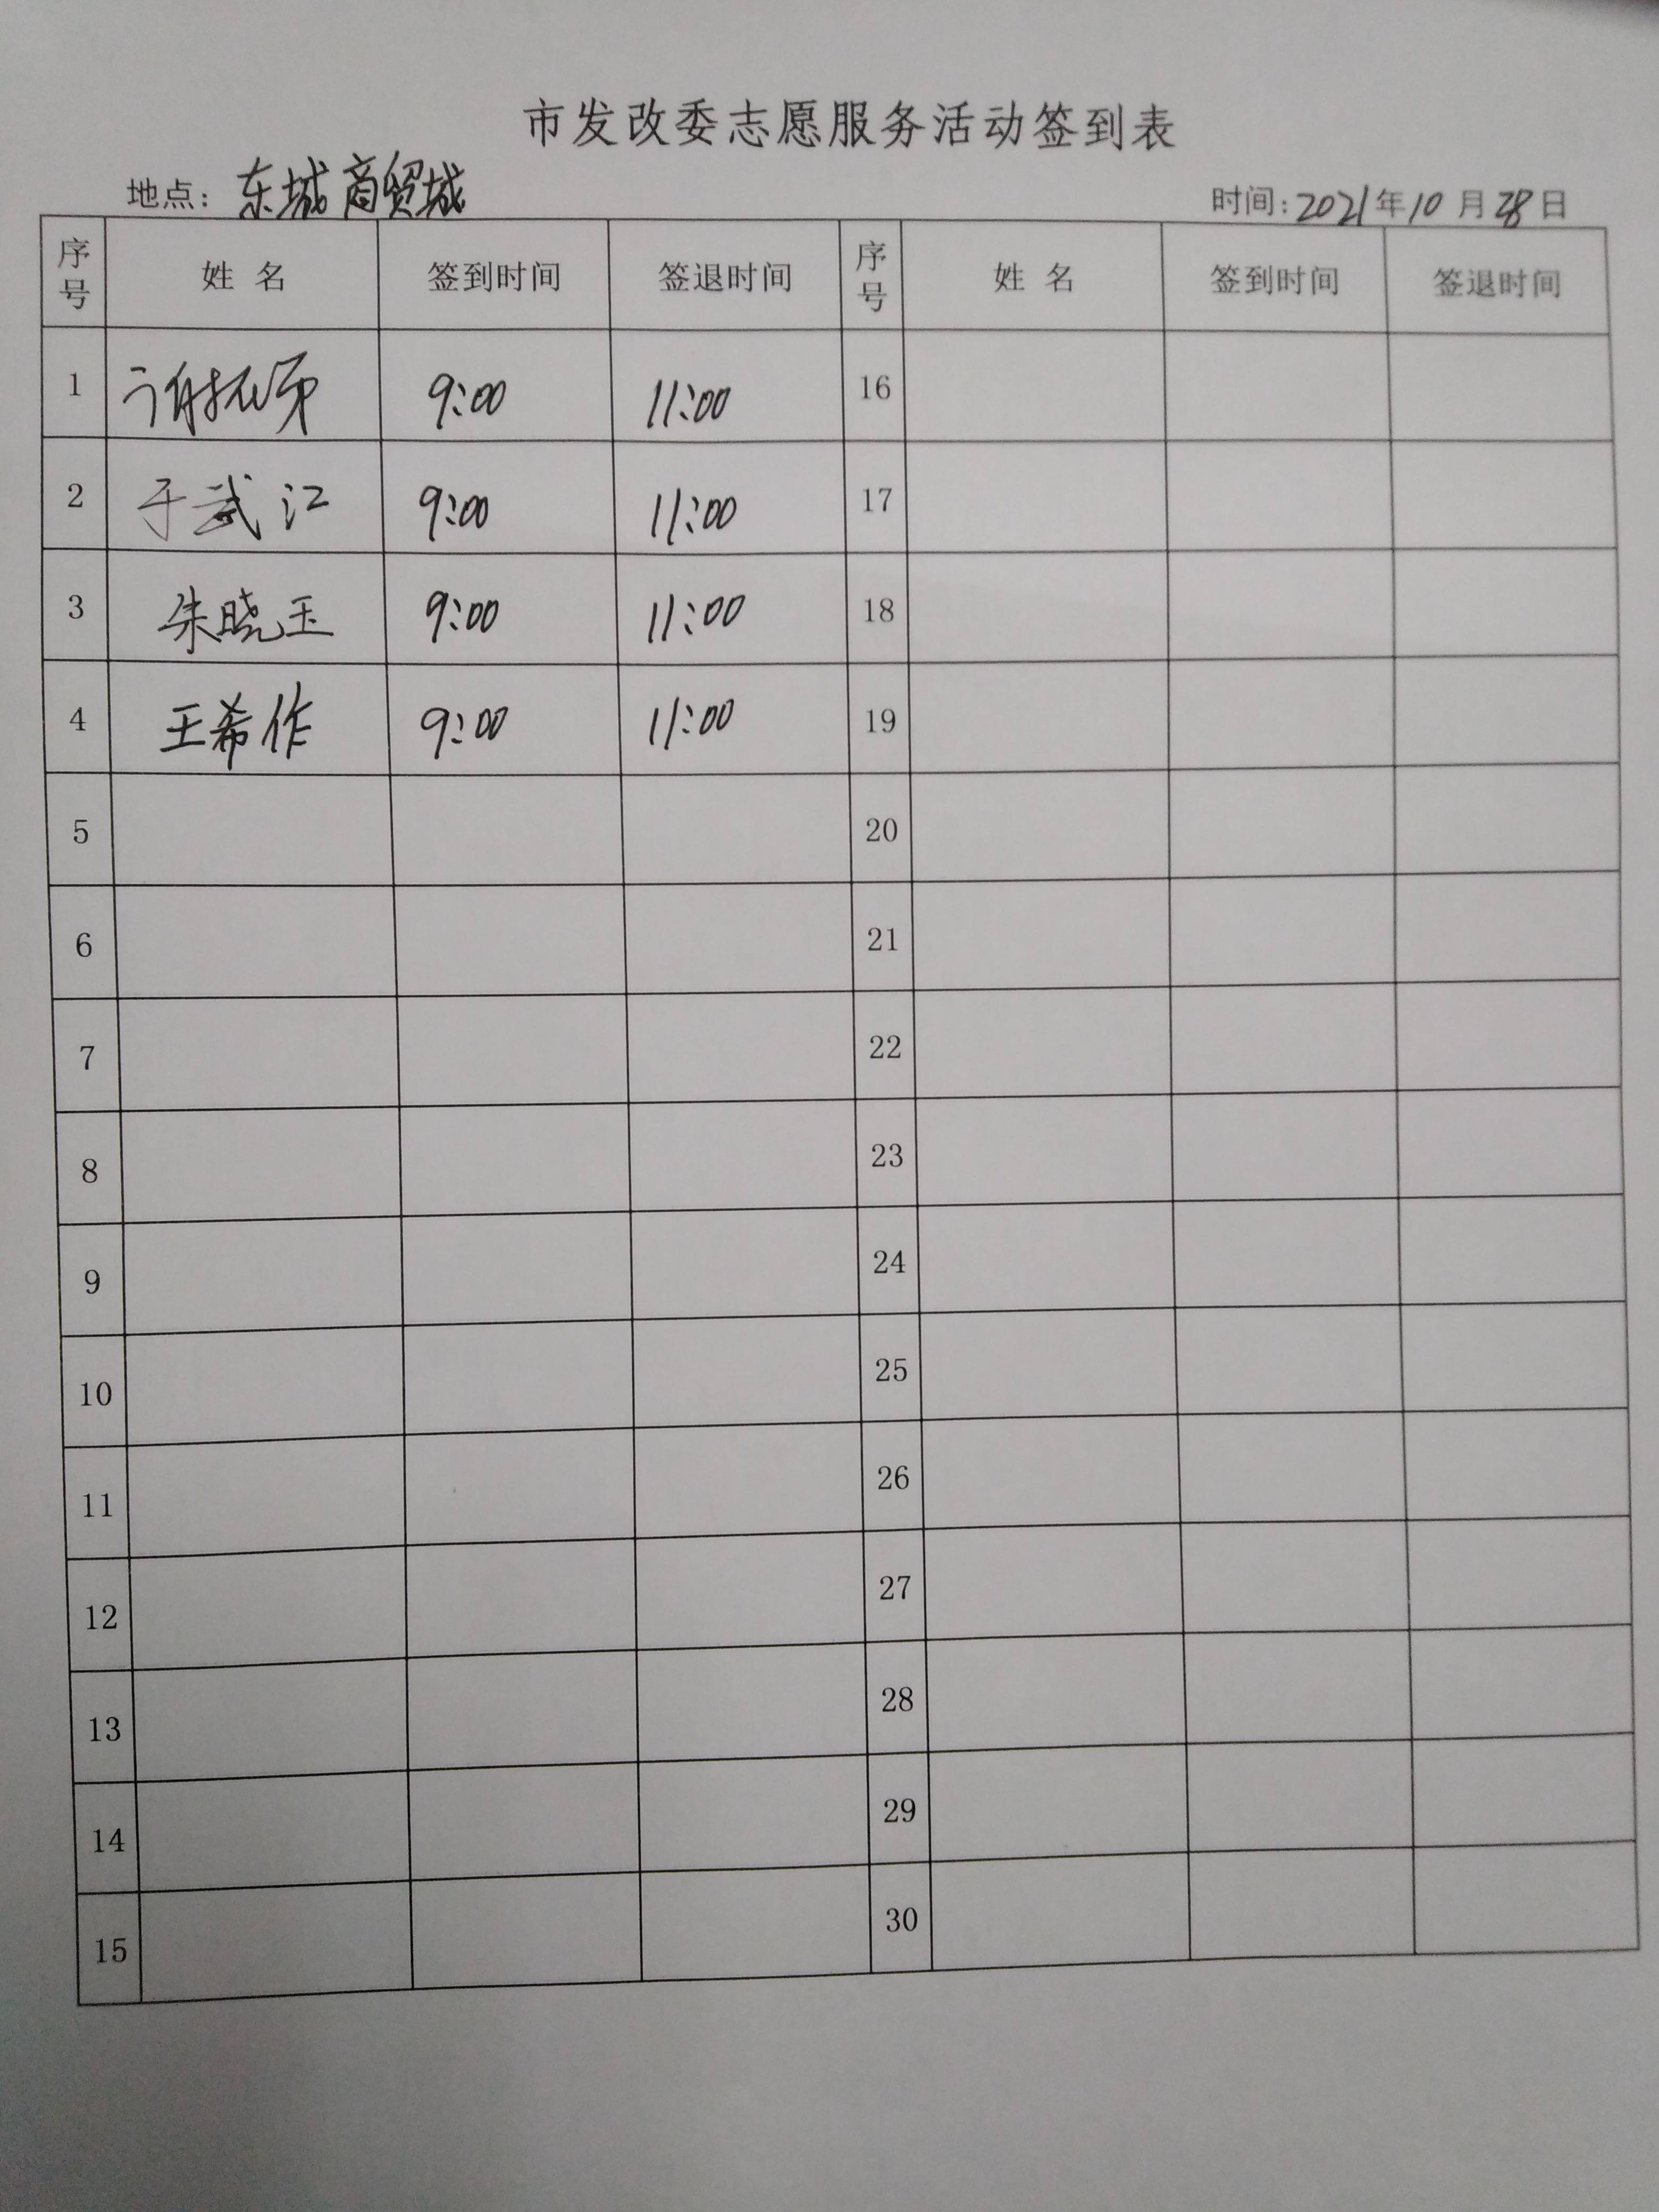 市发改委志愿服务活动签到表
地点: 东城商贸城 时间: 2021年10月28日
序号 姓 名 签到时间 签退时间 序号 姓 名 签到时间 签退时间
1 9:00 11:00 16
2 于武江 9:00 11:00 17
3 朱晓玉 9:00 11:00 18
4 王希作 9:00 11:00 19
5 20
6 21
7 22
8 23
9 24
10 25
11 26
12 27
13 28
14 29
15 30